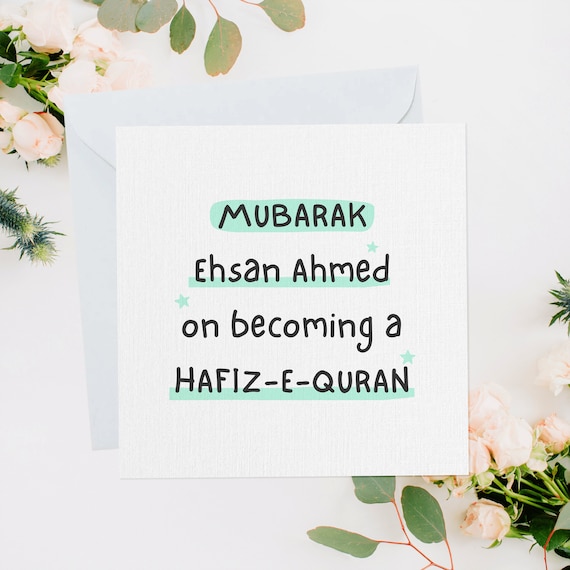 MUBARAK
Ehsan Ahmed
on becoming a
HAFIZ-E-QURAN